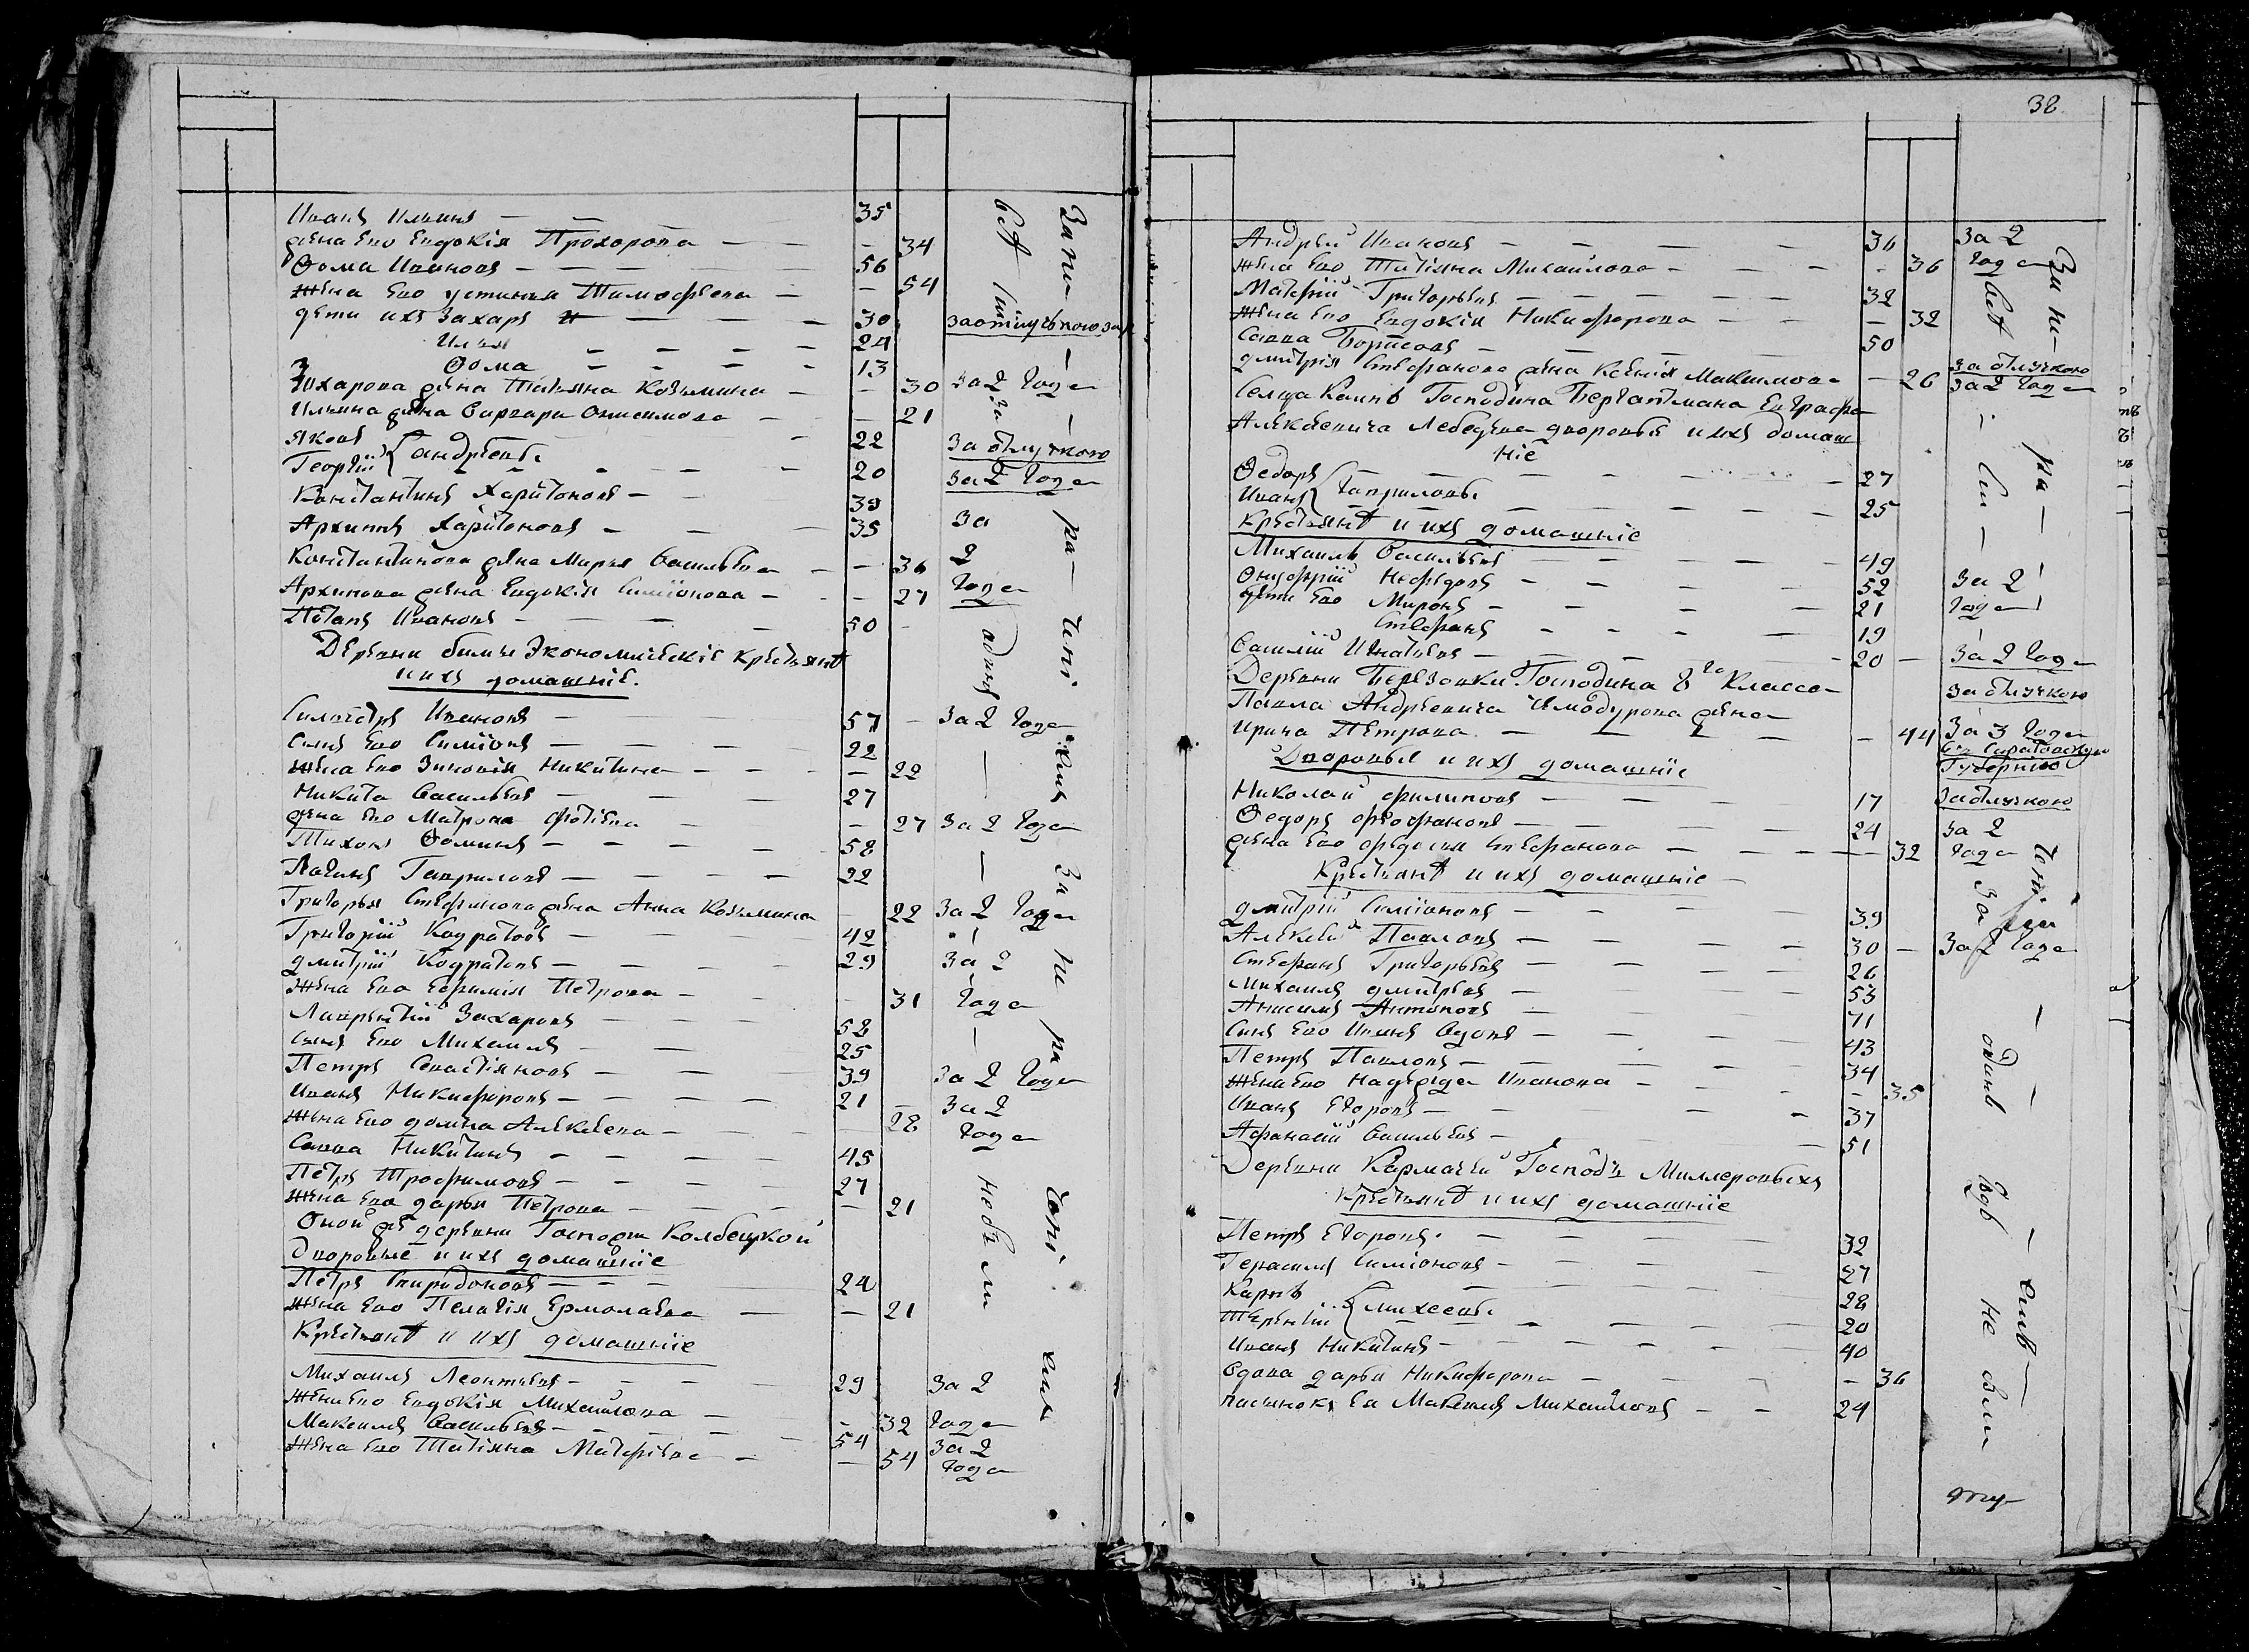 Иванъ Ильинъ — — 35
жена ево Евдокія Прохорова — — — 34
Ѳома Ивановъ — — — 56
жена ево Устинья Тимофѣева — — 54
дети ихъ Захаръ — — — 30 за отлучкою
Илья — — — 24
Ѳома — — — 13
Захарова жена Татьяна Козьмина — — 30 за 2 года
Ильина жена Варвара Онисимова — — 21
Яковъ — 22 за отлучкою
Георгій } андреевы — — 20 за 2 года
Константинъ Харитоновъ — 39
Архипъ Харитоновъ — — 35 за
Константинова жена Марья Васильева — — 36 2
Архипова жена Евдокія Симіонова — — 27 года
Потапъ Ивановъ — — 50
Деревни бывшіе Экономическіе крестьянѣ
и ихъ домашніе.
Силвестръ Ивановъ — 57 — за 2 года
сынъ ево Симіонъ — — 22
жена ево Зиновія Никитина — — — 22
Никита Васильевъ — — 27
жена ево Матрона Фотіева — — 27 за 2 года
Тихонъ Ѳоминъ — — — 58
Гавриловъ — — — 22
Григорья Стефанова жена Анна Козьмина 22 за 2 года
Григорій Кодратовъ — — 42
Дмитрій Кодратовъ — — 29 за 2
жена ево Ефимія Петрова — — 31 года
Лаврентій Захаровъ — — 52
сынъ ево Михаилъ — — 25
Петръ Севастіяновъ — — 39 за 2 года
Иванъ Никифоровъ — — — 21 — за 2
жена ево домна Алексѣева — — 28 года
Савва Никитинъ — — — 45
Петръ Трофимовъ — — — 27
жена ево дарья Петрова — — — 21
Оной же деревни Госпожи Колбецкой
дворовые и ихъ домашніе
Петръ Спиридоновъ — — 24
жена ево Пелагія Ермолаева — — 21
Крестьянѣ и ихъ домашніе
Михаилъ Леонтьевъ — — 29 за 2
жена ево Евдокія Михайлова — — 32 года
Максимъ Васильевъ — — 54 за 2
жена ево Татіяна Матфіева — — 54 года
38
Андрей Ивановъ — — — — 36 за 2
жена ево Татіяна Михайлова — — — 36 года
Матфій Григорьевъ — — — — 32
жена ево Евдокія Никифорова — — — 32
Савва Борисовъ — — — 50
Дмитрія Стефанова жена Ксенія Максимова — 26 за отлучкою за 2 года
Сельца Господина Лебедева дворовыя и ихъ домаш
ніе
Ѳедоръ — — — 27
Иванъ } Гавриловы — — — 25
Крестьянѣ и ихъ домашніе
Михаилъ Васильевъ — — — 49
Онуфрій Нефедовъ — — — 52 за 2
дети ево Миронъ — — — 21 года
Стефанъ — — — 19
Василій Игнатьевъ — — — 20 — за 2 года
Деревни Березовки Господина 8го Класса за отлучкою
Павла Андреевича жена
Ирина Петрова — — — 44 за 3 года
въ Саратовскую
Губернію
Дворовые и ихъ домашніе
Николай Филиповъ — — — 17 за отлучкою
Ѳедоръ Феофановъ — — — 24 за 2
жена ево Федосья Стефанова — — — 32 года
Крестьянѣ и ихъ домашніе
Дмитрій Симіоновъ — — — 39
Алексѣй Павловъ — — — 30 — за 2 года
Стефанъ Григорьевъ — — — 26
Михаилъ Дмитревъ — — — 53
Анисимъ Антоновъ — — — 71
Сынъ ево Иванъ вдовъ — — — 43
Петръ Павловъ — — — 34
жена ево Надежда Иванова — — — 35
Иванъ Егоровъ — — — 37
Афанасій Васильевъ — — 51
Деревни Господъ Миллеровыхъ
Крестьянѣ и ихъ домашніе
Петръ Егоровъ — — — 32
Герасимъ Симіоновъ — — — 27
Карпъ — — — 28
Терентій } михеевы — — — 20
Иванъ Никитинъ — — — 40
Вдова дарья Никифорова — — — 36
пасынокъ ея Максимъ Михайловъ — — 24